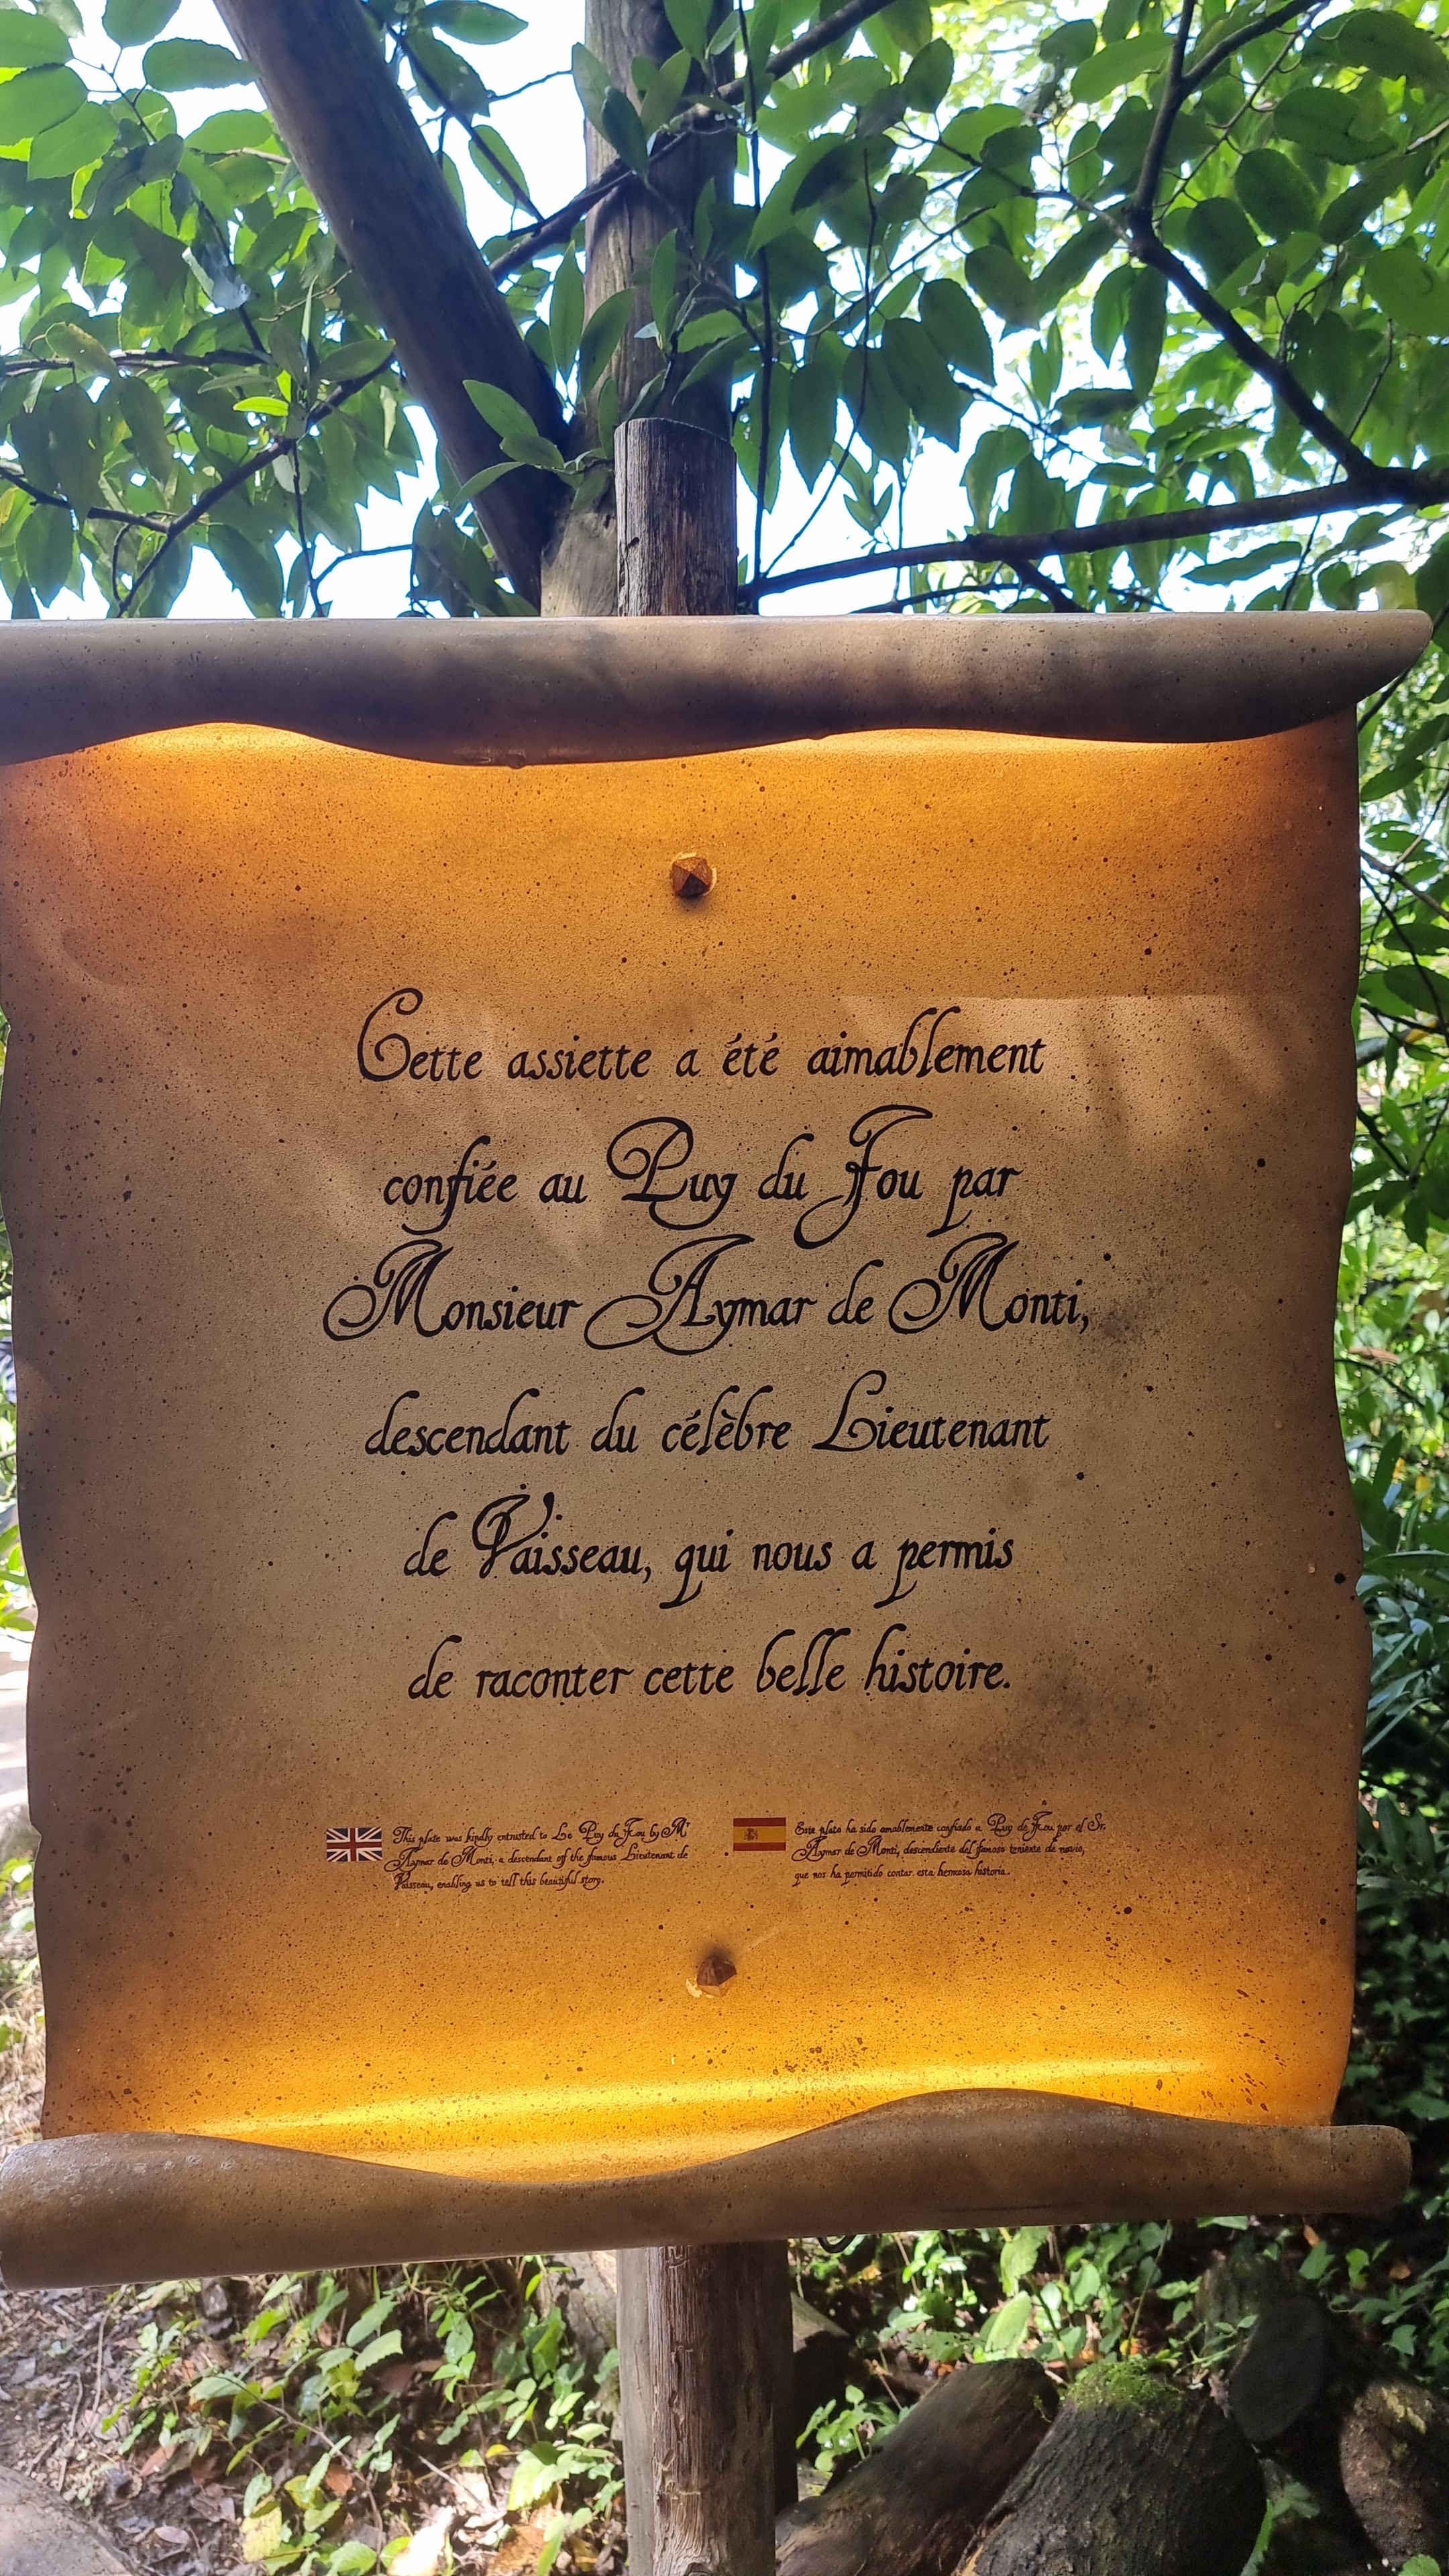 Cette assiette a été aimablement
confiée au Puy du Fou par
Monsieur Aymar de Monti,
descendant du célèbre Lieutenant
de Vaisseau, qui nous a permis
de raconter cette belle histoire.
This plate was kindly entrusted to Le Puy du Fou by Mr
Aymar de Monti, a descendant of the famous Lieutenant de
Vaisseau, enabling us to tell this beautiful story.
Este plato ha sido amablemente confiado a Puy du Fou por el Sr.
Aymar de Monti, descendiente del famoso teniente de navío,
que nos ha permitido contar esta hermosa historia.